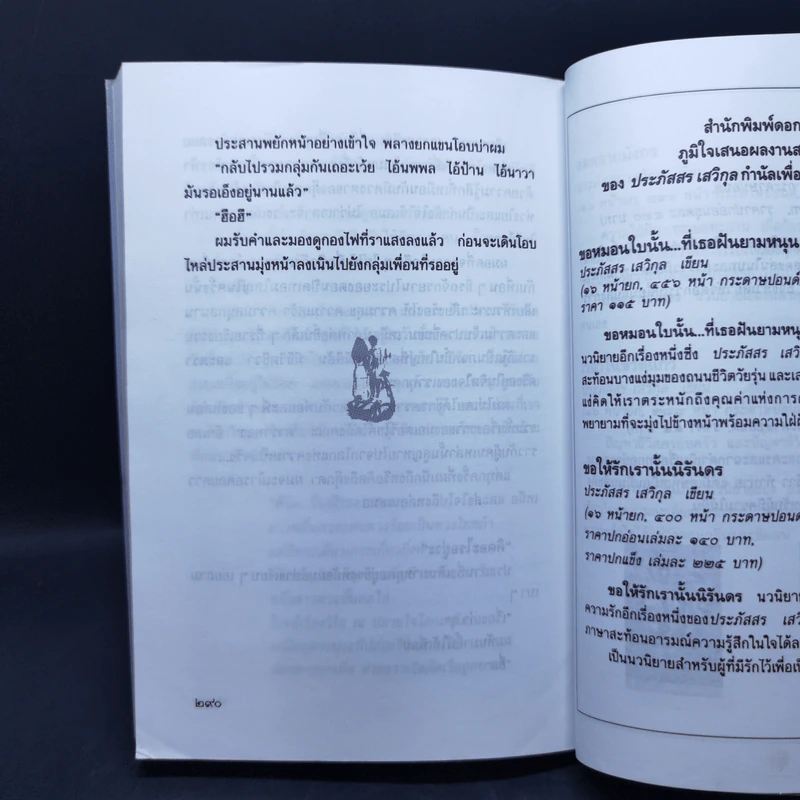 ประสานพยักหน้าอย่างเข้าใจ พลางยกแขนโอบบ่าผม
“กลับไปรวมกลุ่มกันเถอะเว้ย ไอ้นพพล ไอ้ป้าน ไอ้นาวา
มันรอเอ็งอยู่นานแล้ว”
“ฮือฮึ”
ผมรับคำและมองดูกองไฟที่ราแสงลงแล้ว ก่อนจะเดินโอบ
ไหล่ประสานมุ่งหน้าลงเนินไปยังกลุ่มเพื่อนที่รออยู่
๒๙๐
สำนักพิมพ์ดอก
ภูมิใจเสนอผลงานส
ของ ประภัสสร เสวิกุล กำนัลเพื่อ
ขอหมอนใบนั้น...ที่เธอฝันยามหนุน
ประภัสสร เสวิกุล เขียน
(๑๖ หน้ายก, ๔๕๖ หน้า กระดาษปอนด์
ราคา ๑๑๕ บาท)
ขอหมอนใบนั้น...ที่เธอฝันยามหนุ
นวนิยายอีกเรื่องหนึ่งซึ่ง ประภัสสร เส
สะท้อนบางแง่มุมของถนนชีวิตวัยรุ่น และเส
แง่คิดให้เราตระหนักถึงคุณค่าแห่งการ
พยายามที่จะมุ่งไปข้างหน้าพร้อมความใฝ่
ขอให้รักเรานั้นนิรันดร
ประภัสสร เสวิกุล เขียน
(๑๖ หน้ายก, ๔๐๐ หน้า กระดาษปอนด์
ราคาปกอ่อนเล่มละ ๑๔๐ บาท,
ราคาปกแข็ง เล่มละ ๒๒๕ บาท)
ขอให้รักเรานั้นนิรันดร นวนิยาย
ความรักอีกเรื่องหนึ่งของประภัสสร เสวิ
ภาษาสะท้อนอารมณ์ความรู้สึกในใจได้ล
เป็นนวนิยายสำหรับผู้ที่มีรักไว้เพื่อเ